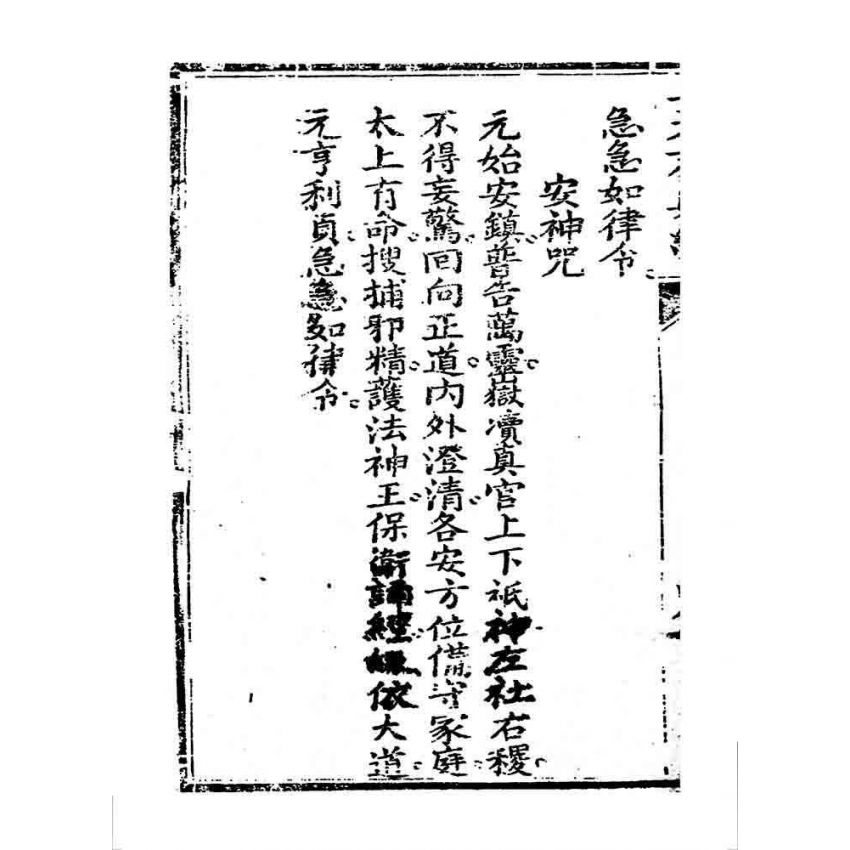 急急如律令
安神咒
元始安鎮普告萬靈嶽瀆真官上下祇神左社右稷
不得妄驚回向正道內外澄清各安方位備守家庭
太上有命搜捕邪精護法神王保衛誦經皈依大道
元亨利貞急急如律令